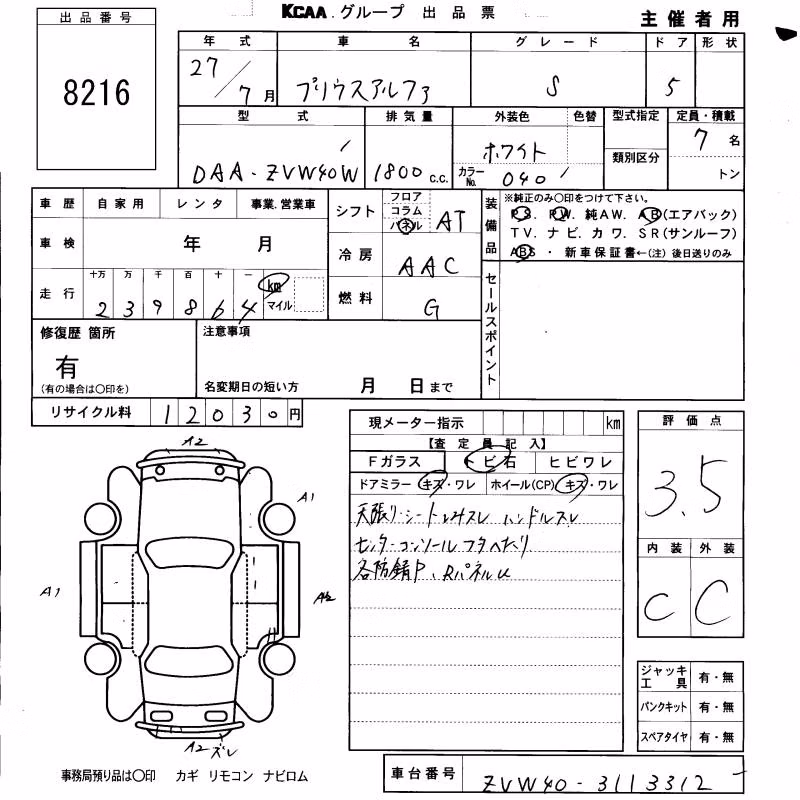 出品番号
8216
KCAA.グループ 出品票
主催者用
年式 車名 グレード ドア 形状
27/7月 プリウスアルファ S 5
型式 排気量 外装色 色替 型式指定 定員・積載
DAA-ZVW40W 1800c.c. ホワイト 7名
カラーNo. 040 類別区分 トン
車歴 自家用 レンタ 事業.営業車
車検 年 月
走行 十万 万 千 百 十 一
239864 km マイル
シフト フロア コラム パネル AT
冷房 AAC
燃料 G
装備品
※純正のみ〇印をつけて下さい。
PS. PW. 純AW. AB(エアバック)
TV. ナビ. カワ. SR(サンルーフ)
ABS ・ 新車保証書←(注) 後日送りのみ
セールスポイント
修復歴 箇所
有
(有の場合は〇印を)
注意事項
名変期日の短い方 月 日まで
リサイクル料 12030円
現メーター指示 km
【査定員記入】
Fガラス トビ石 ヒビワレ
ドアミラー キズ・ワレ ホイール(CP) キズ・ワレ
天張り・シートしみスレ ハンドルスレ
センターコンソールフタへたり
各防錆P、Rパネルu
評価点
3.5
内装 外装
C C
ジャッキ工具 有・無
パンクキット 有・無
スペアタイヤ 有・無
A2
A1
A1
A2
A2 ズレ
事務局預り品は〇印 カギ リモコン ナビロム
車台番号 ZVW40-3113312